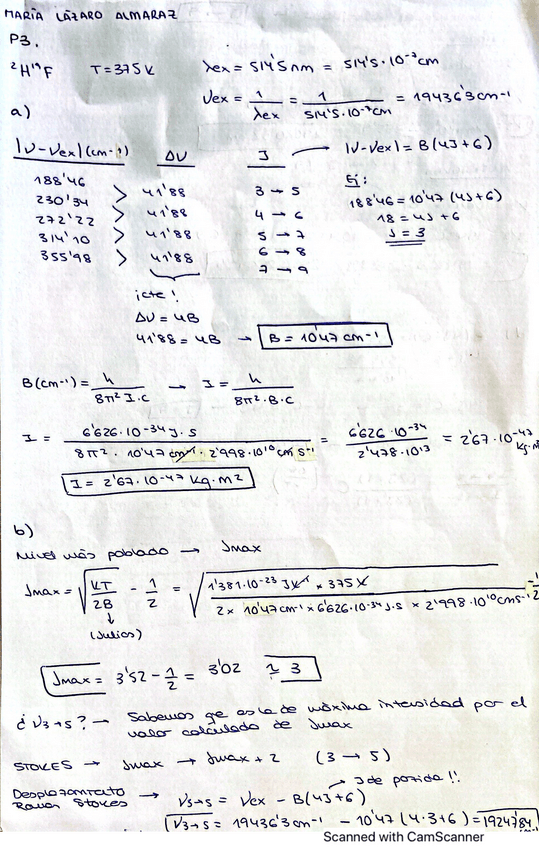 MARÍA LÁZARO ALMARAZ
P3.
²H¹⁹F T=375K λex = 514'5nm = 514'5·10⁻⁷cm
νex = 1/λex = 1/514'5·10⁻⁷cm = 19436'3cm⁻¹
a)
|ν-νex|(cm⁻¹) Δν J → |ν-νex| = B(4J+6)
188'46 Ej:
230'34 > 41'88 3 → 5 188'46 = 10'47 (4J+6)
272'22 > 41'88 4 → 6 18 = 4J + 6
314'10 > 41'88 5 → 7 J = 3
355'98 > 41'88 6 → 8
7 → 9
¡cte!
Δν = 4B
41'88 = 4B → B = 10'47 cm⁻¹
B(cm⁻¹) = h/8π²·I·c → I = h/8π²·B·c
I = 6'626·10⁻³⁴ J·s / 8π² · 10'47 cm⁻¹ · 2'998·10¹⁰ cm s⁻¹ = 6'626·10⁻³⁴ / 2'478·10¹³ = 2'67·10⁻⁴⁷ kg·m²
I = 2'67·10⁻⁴⁷ kg·m2
b)
Nivel más poblado → Jmax
Jmax = √(KT/2B) - 1/2 = √(1'381·10⁻²³ JK⁻¹ × 375 K / 2 × 10'47cm⁻¹ × 6'626·10⁻³⁴ J·s × 2'998·10¹⁰ cm s⁻¹) - 1/2
(Julios)
Jmax = 3'52 - 1/2 = 3'02 ≃ 3
¿ν3→5? → Sabemos qe es la de máxima intensidad por el
valor calculado de Jmax
STOKES → Jmax → Jmax + 2 (3 → 5)
Desplazamiento → J de partida!!
Raman Stokes → ν3→5 = νex - B(4J+6)
ν3→5 = 19436'3cm⁻¹ - 10'47 (4·3+6) = 19247'84 cm⁻¹
Scanned with CamScanner